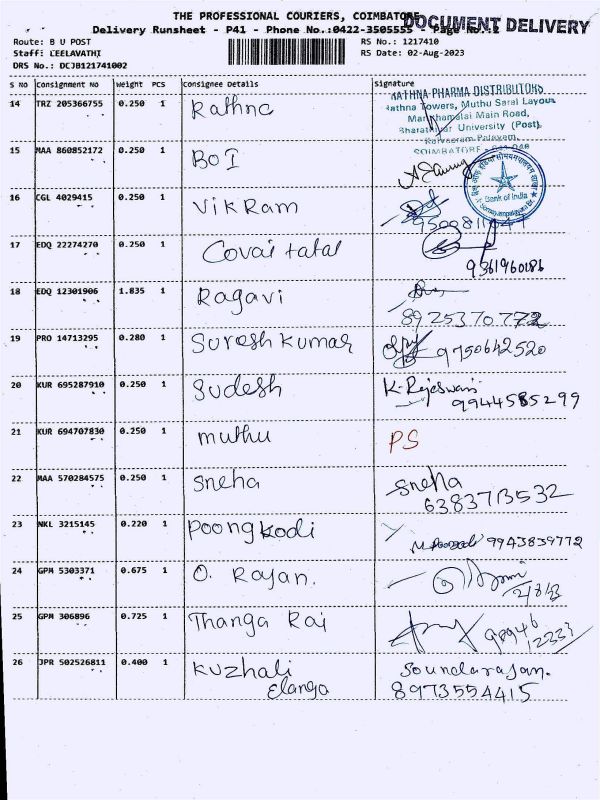 THE PROFESSIONAL COURIERS, COIMBATORE
DOCUMENT DELIVERY
Delivery Runsheet - P41 - Phone No.:0422-3505555 - Page No.:2
Route: B U POST
RS No.: 1217410
Staff: LEELAVATHI
RS Date: 02-Aug-2023
DRS No.: DCJB121741002
S NO Consignment No Weight PCS Consignee Details Signature
14 TRZ 205366755 0.250 1 Rathna
RATHNA PHARMA DISTRIBUTORS
Rathna Towers, Muthu Saral Layout
Maruthamalai Main Road,
Bharathiyar University (Post),
Kalveeram Palayam,
COIMBATORE - 641 046
15 MAA 860852172 0.250 1 BOI
Bank of India
16 CGL 4029415 0.250 1 Vikram
17 EDQ 22274270 0.250 1 Covai tatal
9361960186
18 EDQ 12301906 1.835 1 Ragavi
8925370772
19 PRO 14713295 0.280 1 Suresh kumar 9750642520
20 KUR 695287910 0.250 1 Sudesh K-Rajeswari
9944585299
21 KUR 694707830 0.250 1 muthu PS
22 MAA 570284575 0.250 1 Sneha Sneha
6383713532
23 NKL 3215145 0.220 1 Poongkodi 9943839772
24 GPM 5303371 0.675 1 O. Rajan.
2/8/23
25 GPM 306896 0.725 1 Thanga Raj 98946
12333
26 JPR 502526811 0.400 1 Kuzhali Soundarajan.
Elanga 8973554415